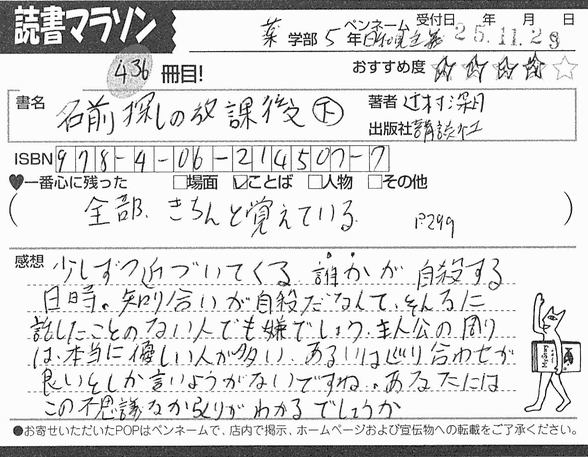 読書マラソン
薬 学部 5 年 ペンネーム 日和見主義 受付日 25年 11月 28日
436 冊目! おすすめ度 ☆☆☆☆☆
書名 名前探しの放課後 下 著者 辻村深月
出版社 講談社
ISBN 978-4-06-214507-7
♥一番心に残った □場面 ☑ことば □人物 □その他
( 全部、きちんと覚えている P299 )
感想 少しずつ近づいてくる 誰かが 自殺する
日時。知り合いが自殺だなんて、そんなに
話したことのない人でも嫌でしょう。主人公の周り
は、本当に優しい人が多い、あるいは巡り合わせが
良いとしか言いようがないですね。あなたには
この不思議なからくりがわかるでしょうか
●お寄せいただいたPOPはペンネームで、店内で掲示、ホームページおよび宣伝物への転載をご了承ください。